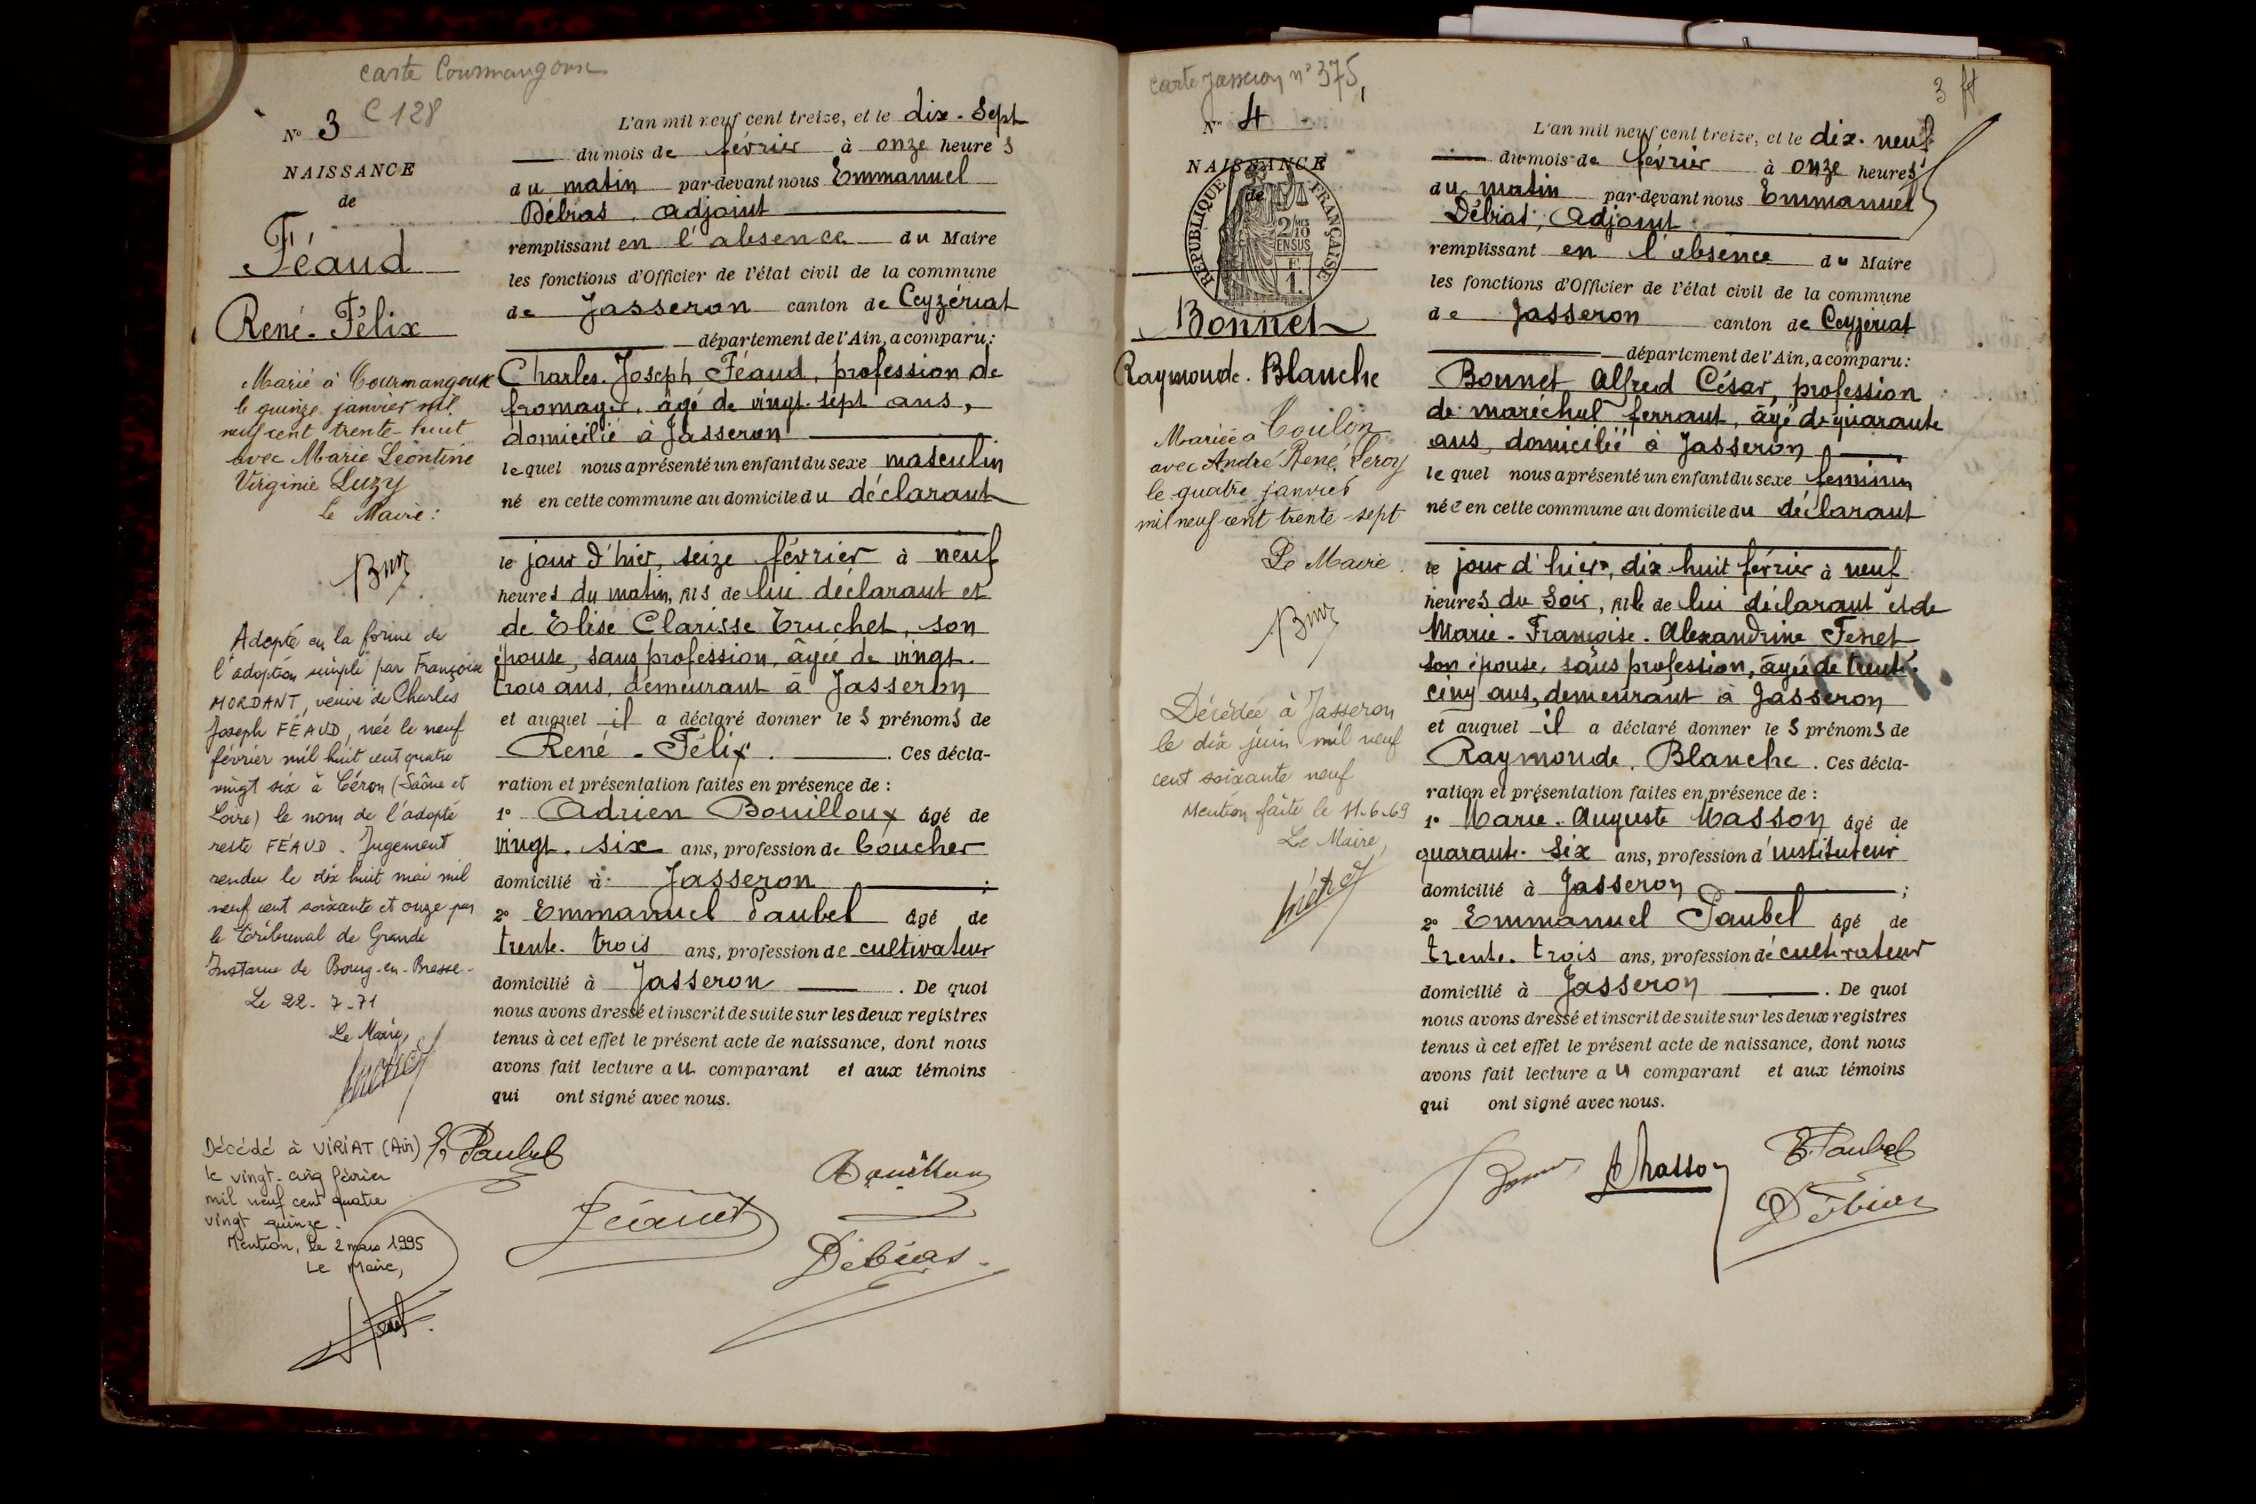 carte Courmangoux
C 128
N° 3
NAISSANCE
de
Féaud
René-Félix
Marié à Courmangoux
le quinze janvier mil
neuf cent trente-huit
avec Marie Léontine
Virginie Luzy
Le Maire:
Adopté en la forme de
l'adoption simple par Françoise
MORDANT, veuve de Charles
Joseph FÉAUD, née le neuf
février mil huit cent quatre
vingt six à Céron (Saône et
Loire) le nom de l'adopté
reste FÉAUD. Jugement
rendu le dix huit mai mil
neuf cent soixante et onze par
le Tribunal de Grande
Instance de Bourg-en-Bresse-
Le 22-7-71
Le Maire,
Décédé à VIRIAT (Ain)
le vingt-cinq février
mil neuf cent quatre
vingt quinze.
Mention, le 2 mars 1995
Le Maire,
L'an mil neuf cent treize, et le dix-sept
du mois de février à onze heures
du matin par-devant nous Emmanuel
Débias, adjoint
remplissant en l'absence du Maire
les fonctions d'Officier de l'état civil de la commune
de Jasseron canton de Ceyzériat
département de l'Ain, a comparu:
Charles-Joseph Féaud, profession de
fromager, âgé de vingt-sept ans,
domicilié à Jasseron
lequel nous a présenté un enfant du sexe masculin
né en cette commune au domicile du déclarant
le jour d'hier, seize février à neuf
heures du matin, fils de lui déclarant et
de Elise Clarisse Truchet, son
épouse, sans profession, âgée de vingt-
trois ans, demeurant à Jasseron
et auquel il a déclaré donner les prénoms de
René-Félix. Ces décla-
ration et présentation faites en présence de :
1° Adrien Bouilloux âgé de
vingt-six ans, profession de boucher
domicilié à Jasseron ;
2° Emmanuel Paubel âgé de
trente-trois ans, profession de cultivateur
domicilié à Jasseron. De quoi
nous avons dressé et inscrit de suite sur les deux registres
tenus à cet effet le présent acte de naissance, dont nous
avons fait lecture au comparant et aux témoins
qui ont signé avec nous.
E. Paubel
Bouilloux
Féaud
Débias
carte Jasseron n° 375
3
N° 4
NAISSANCE
de
RÉPUBLIQUE FRANÇAISE
2/10
EN SUS
1.
Bonnet
Raymonde-Blanche
Mariée à Toulon
avec André René Leroy
le quatre janvier
mil neuf cent trente-sept
Le Maire
Décédée à Jasseron
le dix juin mil neuf
cent soixante neuf
Mention faite le 11-6-69
Le Maire,
L'an mil neuf cent treize, et le dix-neuf
du mois de février à onze heures
du matin par-devant nous Emmanuel
Débias, Adjoint
remplissant en l'absence du Maire
les fonctions d'Officier de l'état civil de la commune
de Jasseron canton de Ceyzériat
département de l'Ain, a comparu:
Bonnet Alfred César, profession
de maréchal ferrant, âgé de quarante
ans, domicilié à Jasseron
lequel nous a présenté un enfant du sexe féminin
née en cette commune au domicile du déclarant
le jour d'hier, dix huit février à neuf
heures du soir, fille de lui déclarant et de
Marie-Françoise-Alexandrine Ferret
son épouse, sans profession, âgée de trente-
cinq ans, demeurant à Jasseron
et auquel il a déclaré donner les prénoms de
Raymonde, Blanche. Ces décla-
ration et présentation faites en présence de :
1° Marie-Auguste Masson âgé de
quarante-six ans, profession d'instituteur
domicilié à Jasseron ;
2° Emmanuel Paubel âgé de
trente-trois ans, profession de cultivateur
domicilié à Jasseron. De quoi
nous avons dressé et inscrit de suite sur les deux registres
tenus à cet effet le présent acte de naissance, dont nous
avons fait lecture au comparant et aux témoins
qui ont signé avec nous.
A Masson
E. Paubel
Débias